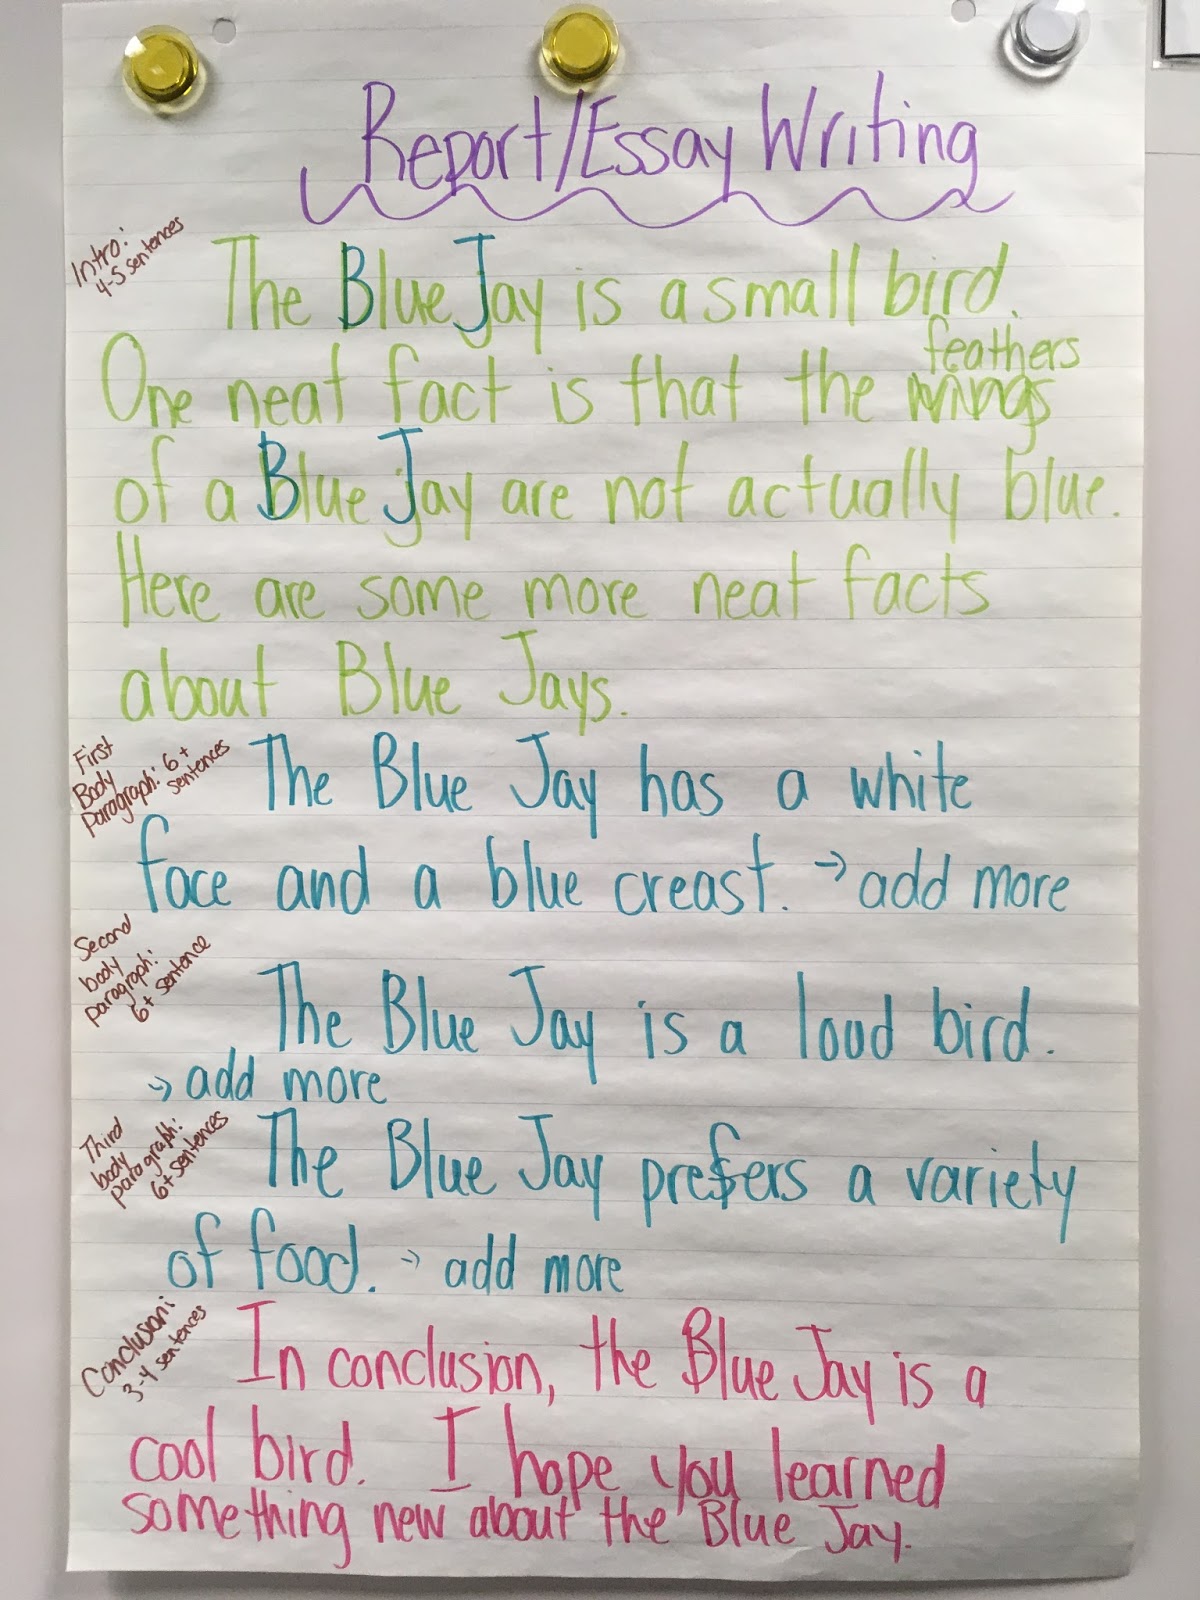 Report/Essay Writing
Intro:
4-5 sentences
The Blue Jay is a small bird.
feathers
One neat fact is that the wings
of a Blue Jay are not actually blue.
Here are some more neat facts
about Blue Jays.
First
Body
Paragraph: 6+
sentences
The Blue Jay has a white
face and a blue creast. → add more
Second
body
paragraph:
6+ sentence
The Blue Jay is a loud bird.
→ add more
Third
body
paragraph:
6+ sentences
The Blue Jay prefers a variety
of food. → add more
Conclusion:
3-4 sentences
In conclusion, the Blue Jay is a
cool bird. I hope you learned
something new about the Blue Jay.